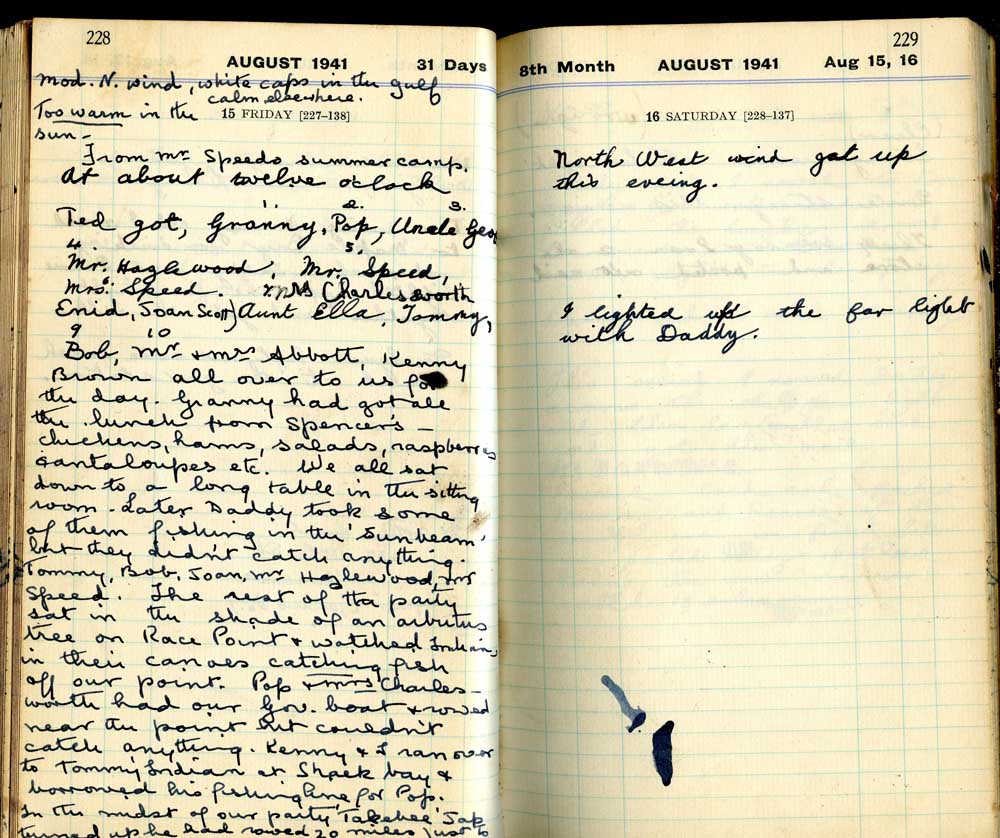 228
AUGUST 1941 31 Days
mod. N. wind, white caps in the gulf
calm elsewhere.
Too warm in the 15 FRIDAY [227-138]
sun -
From Mr Speeds summer camp.
At about twelve o'clock
1. 2. 3.
Ted got, Granny, Pop, Uncle Geo
4. 5.
Mr. Hazlewood, Mr. Speed,
6
Mrs. Speed. & Mrs Charlesworth
Enid, Joan Scott) Aunt Ella, Tommy,
9 10
Bob, Mr & Mrs Abbott, Kenny
Brown all over to us for
the day. Granny had got all
the lunch from Spencer's -
chickens, hams, salads, raspberries
cantaloupes etc. We all sat
down to a long table in the sitting
room - Later Daddy took some
of them fishing in the 'Sunbeam'
but they didn't catch anything.
Tommy, Bob, Joan, Mr Hazlewood, Mr
Speed. The rest of the party
sat in the shade of an arbutus
tree on Race Point & watched Indians
in their canoes catching fish
off our point. Pop & Mrs Charles-
worth had our Gov. boat & rowed
near the point but couldn't
catch anything. Kenny & I ran over
to Tommy Indian at Shack bay &
borrowed his fishingline for Pop.
In the midst of our party 'Takehee' Jap
turned up he had rowed 20 miles just to
229
8th Month AUGUST 1941 Aug 15, 16
16 SATURDAY [228-137]
North West wind got up
this eveing.
I lighted up the far light
with Daddy.